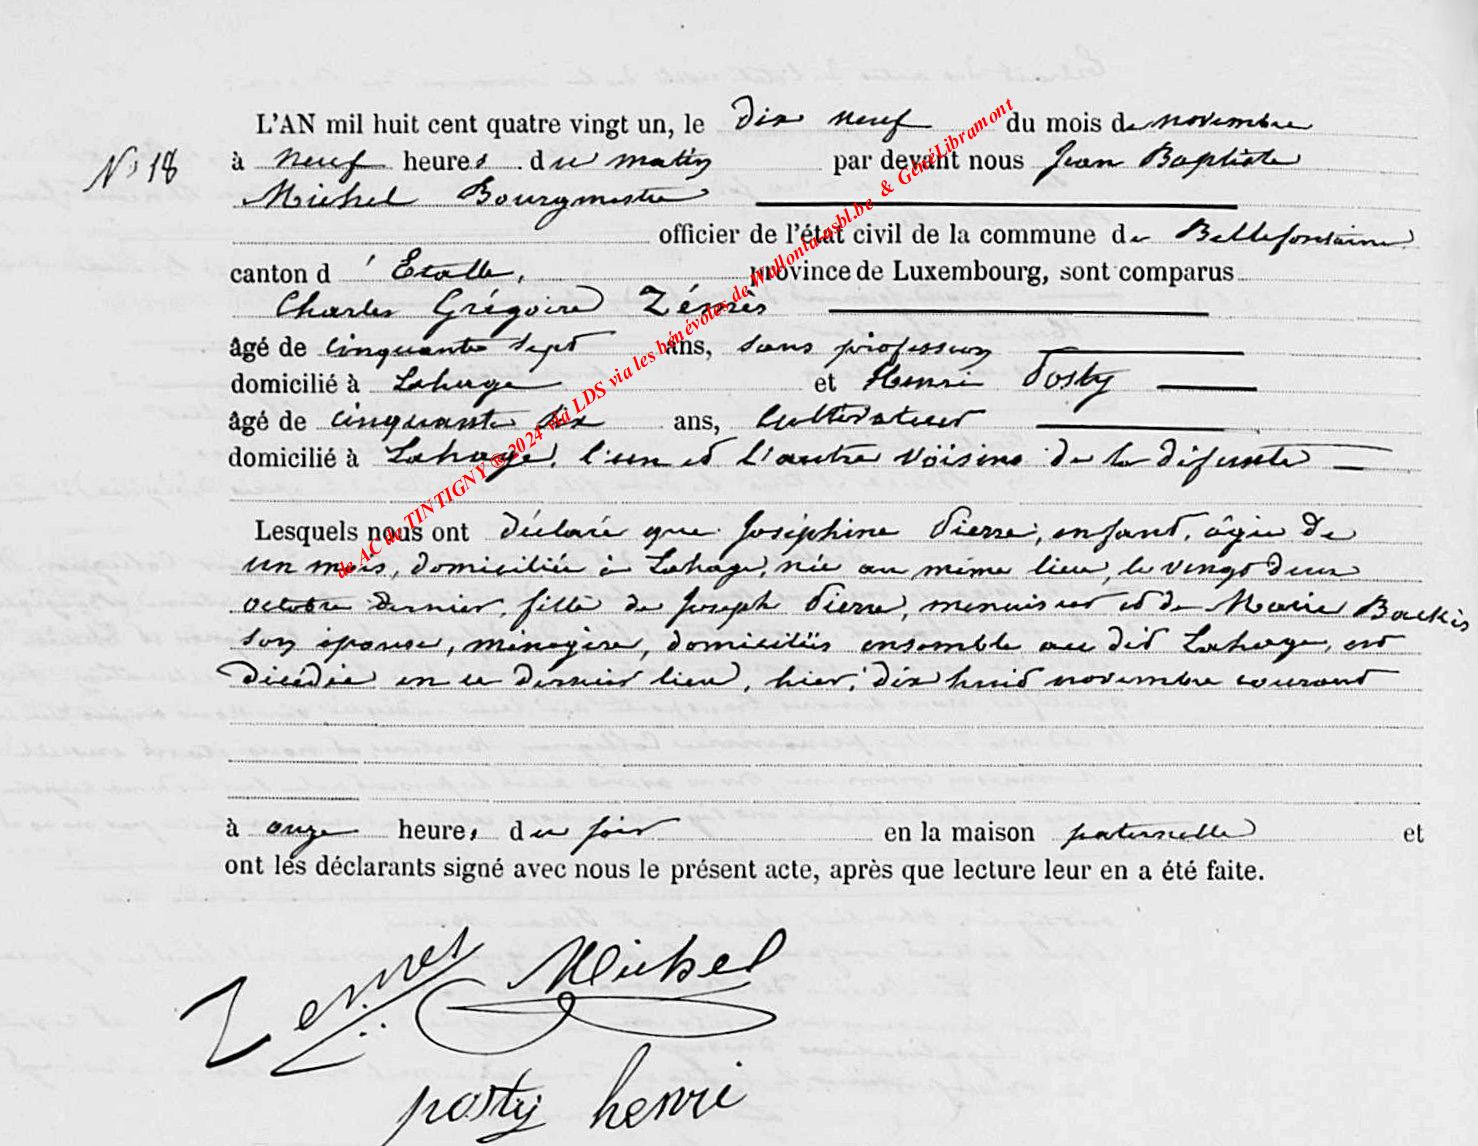 L'AN mil huit cent quatre vingt un, le dix neuf du mois de novembre
N° 18
à neuf heures du matin par devant nous Jean Baptiste
Michel Bourgmestre
officier de l'état civil de la commune de Bellefontaine
canton d'Etalle, province de Luxembourg, sont comparus
Charles Grégoire Zémès
âgé de cinquante sept ans, sans profession
domicilié à Lahage et Henri Posty
âgé de cinquante six ans, cultivateur
domicilié à Lahage, l'un et l'autre voisins de la défunte
Lesquels nous ont déclaré que Joséphine Pierre, enfant, âgée de
un mois, domiciliée à Lahage, née au même lieu, le vingt deux
octobre dernier, fille de Joseph Pierre, menuisier et de Marie Backès
son épouse, ménagère, domiciliés ensemble au dit Lahage, est
décédée en ce dernier lieu, hier, dix huit novembre courant
à onze heures du soir en la maison paternelle et
ont les déclarants signé avec nous le présent acte, après que lecture leur en a été faite.
Michel
posty henri
de AC de TINTIGNY ® 2024 via LDS via les bénévoles de Wallonia-asbl.be & GénéLibramont